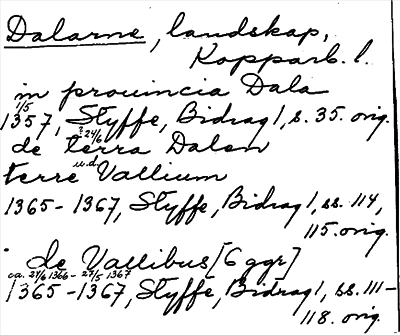 Dalarne, landskap,
Kopparb. l.
in prouincia Dala
1/5
1357, Styffe, Bidrag 1, s. 35. orig.
de terra Dalen
terre Vallium
1365-1367, Styffe, Bidrag 1, ss. 114,
115. orig.
de Vallibus [6 ggr]
ca. 24/6 1366 - 27/5 1367
1365-1367, Styffe, Bidrag 1, ss. 111-
118. orig.